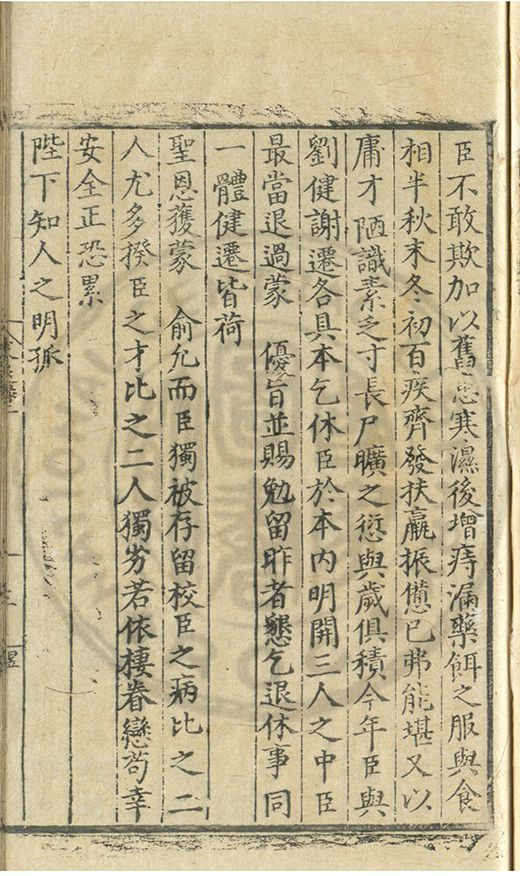 臣不敢欺加以舊患寒濕後增痔漏藥餌之服與食
相半秋末冬初百疾齊發扶羸振憊已弗能堪又以
庸才陋識素乏寸長尸曠之愆與歲俱積今年臣與
劉健謝遷各具本乞休臣於本內明開三人之中臣
最當退過蒙　優旨並賜勉留昨者懇乞退休事同
一體健遷皆荷
聖恩獲蒙　俞允而臣獨被存留校臣之病比之二
人尤多揆臣之才比之二人獨劣若依棲眷戀苟幸
安全正恐累
陛下知人之明孤